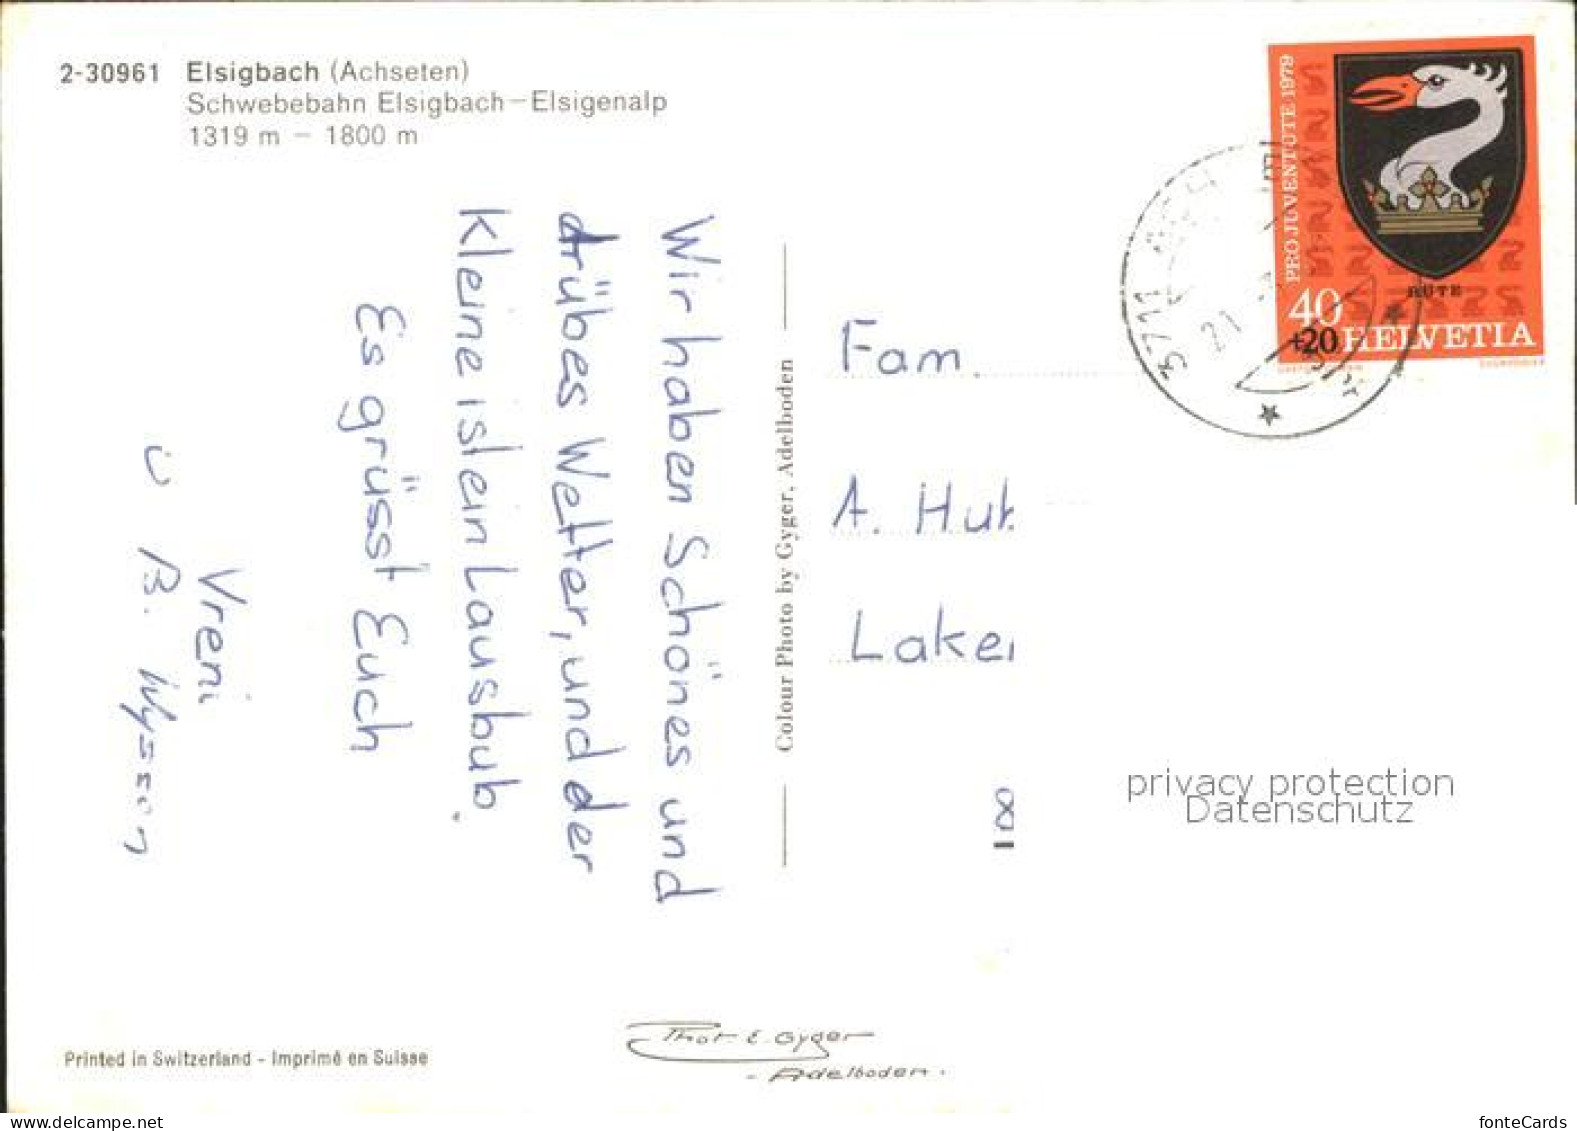 2-30961 Elsigbach (Achseten)
Schwebebahn Elsigbach – Elsigenalp
1319 m – 1800 m
Wir haben Schönes und
trübes Wetter, und der
Kleine ist ein Lausbub.
Es grüsst Euch
Vreni
u B. Wyssen
Colour Photo by Gyger, Adelboden
Printed in Switzerland - Imprimé en Suisse
Phot. E. Gyger
- Adelboden.
PRO JUVENTUTE 1979
RÜTE
40
+20 HELVETIA
3711
21
Fam.
A. Hu
Lake
privacy protection
Datenschutz
fonteCards